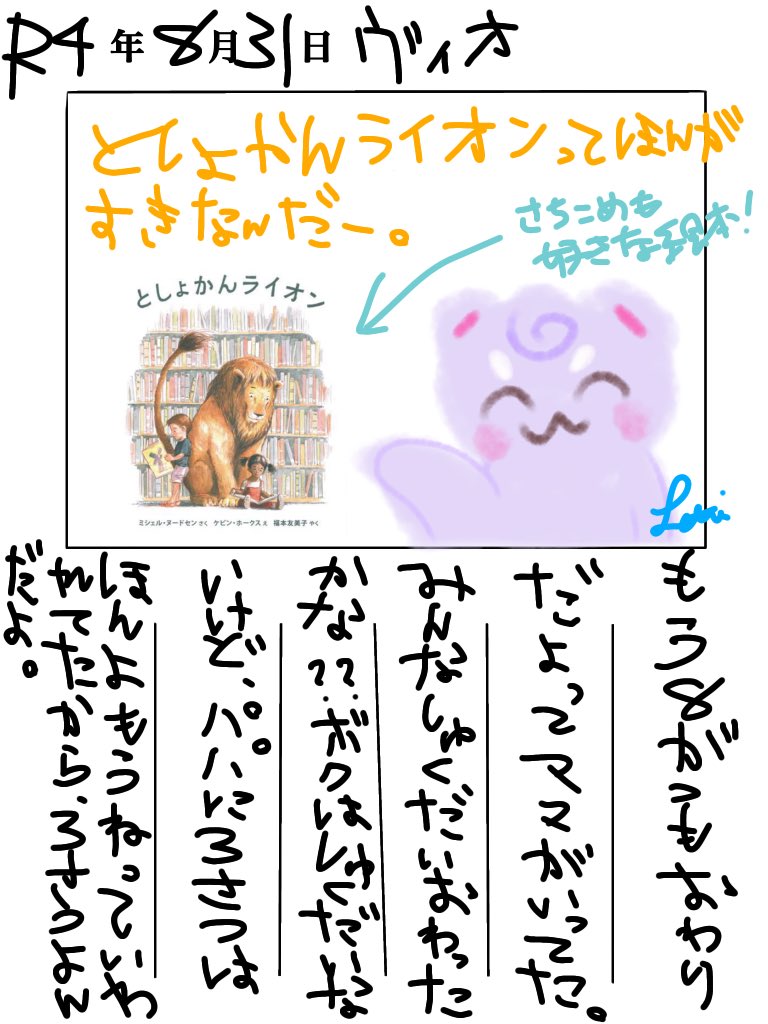 R4年8月31日 ヴィオ
としょかんライオンってほんが
すきなんだー。
さちこめも
好きな絵本!
としょかんライオン
ミシェル・ヌードセン さく ケビン・ホークス え 福本友美子 やく
もう8がつもおわり
だよってママがいってた。
みんなしゅくだいおわった
かな??ボクはしゅくだいな
いけど、パパに3さつは
ほんよもうねっていわ
れてたから、3さつよん
だよ。